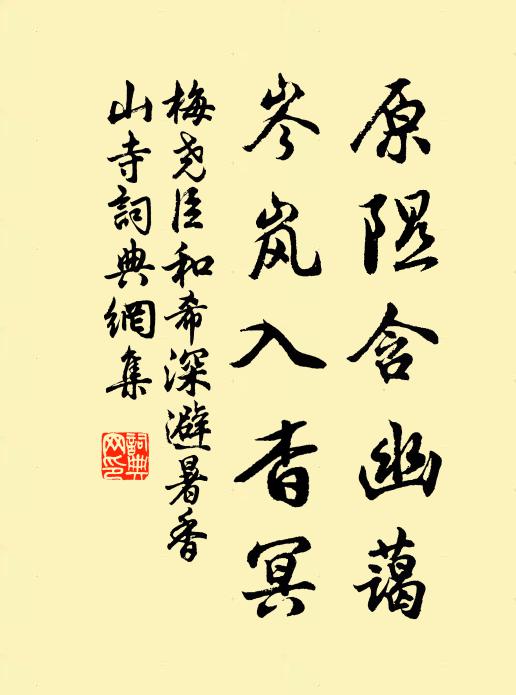 原隰含幽藹
岑岚入杳冥
梅尧臣和希深避暑香
山寺詞典網集
詞典
网印